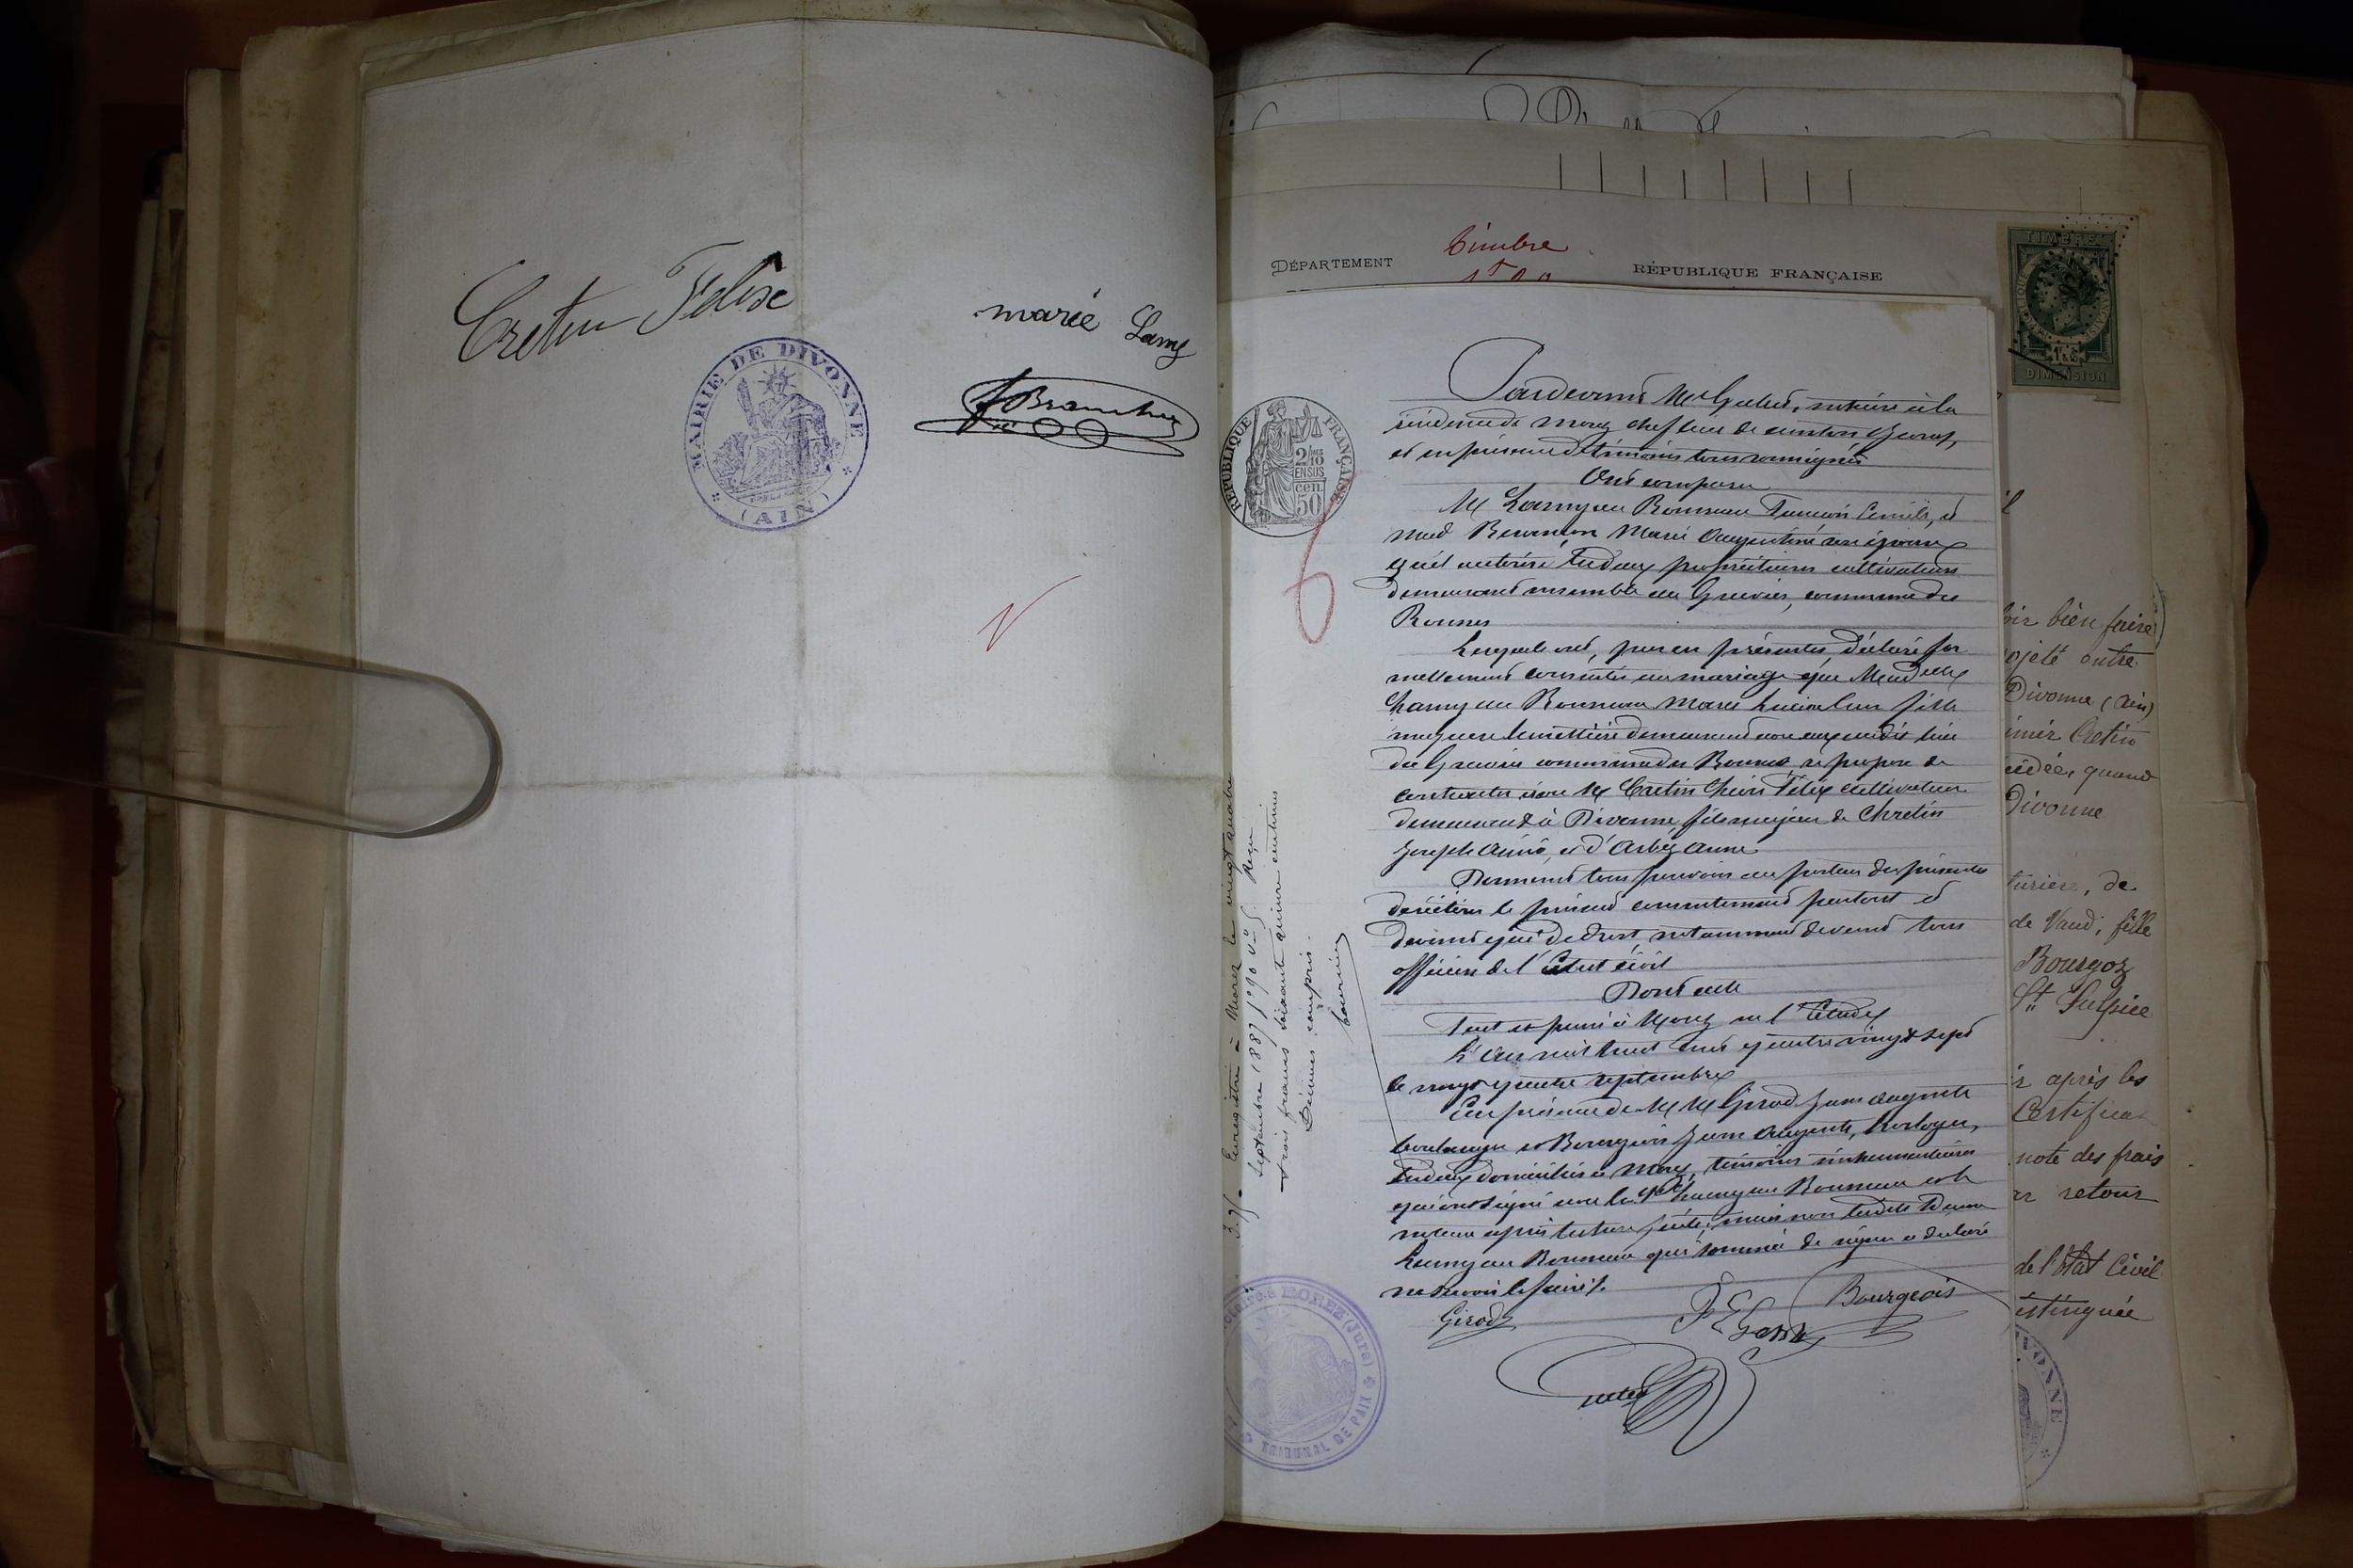 Cretin Félix
marie Lamy
MAIRIE DE DIVONNE
(AIN)
DÉPARTEMENT
timbre
RÉPUBLIQUE FRANÇAISE
TIMBRE
DIMENSION
RÉPUBLIQUE FRANÇAISE
2/10 EN SUS
50 cen.
Pardevant Me notaire à la
résidence de Morez chef lieu de canton (Jura),
et en présence de témoins tous soussignés
Ont comparu
M Lamy au Bonneau et
mad Marie Augustine son épouse
qu'il autorise, tous deux propriétaires cultivateurs
demeurant ensemble au commune des
Rousses
Lesquels ont, par ces présentes, déclaré for
mellement consentir au mariage que Mademelle
Lamy au Bonneau Marie leur fille
majeure demeurant avec eux audit lieu
du commune des Rousses, se propose de
contracter avec M Cretin Félix cultivateur
demeurant à Divonne, fils majeur de Chretin
Joseph Aimé, et d'Arbez Anne
Donnant tous pouvoirs au porteur des présentes
de réitérer le présent consentement partout et
devant qui de droit, notamment devant tous
officiers de l'Etat civil
Dont acte
Fait et passé à Morez en l'Etude
L'an mil huit cent quatre vingt sept
le vingt quatre septembre
En présence de M M Girod Jean Auguste
boulanger et Bourgeois Jean Auguste, horloger,
tous deux domiciliés à Morez, témoins instrumentaires
qui ont signé avec le Sr Lamy au Bonneau et le
notaire après lecture faite, mais non ladite Dame
Lamy au Bonneau qui sommée de signer a déclaré
ne savoir le faire /.
Girod
Bourgeois
3.75. Enregistré à Morez le vingt quatre
septembre 1887 fo 90 vo c 5. Reçu
trois francs soixante quinze centimes
Décimes compris.
MOREZ (Jura)
TRIBUNAL DE PAIX
bien faire
ojeté entre
Divonne (Ain)
Cretin
cédée, quand
Divonne
turière, de
de Vaud, fille
Bourgoz
St Sulpice
r après les
Certificat
note des frais
r retour
de l'Etat Civil
istinguée